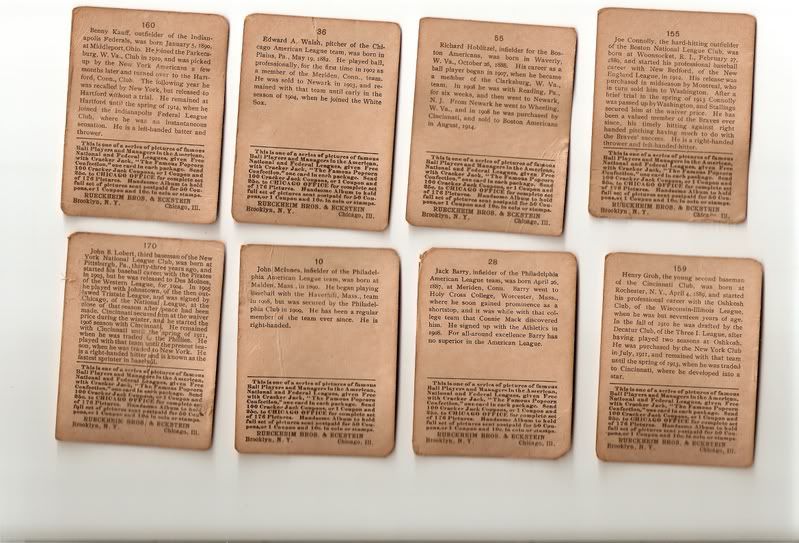 160
Benny Kauff, outfielder of the Indian-
apolis Federals, was born January 5, 1890,
at Middleport, Ohio. He joined the Parkers-
burg, W. Va., Club in 1910, and was picked
up by the New York Americans a few
months later and turned over to the Hart-
ford, Conn., Club. The following year he
was recalled by New York, but released to
Hartford without a trial. He remained at
Hartford until the spring of 1914, when he
joined the Indianapolis Federal League
Club, where he was an instantaneous
sensation. He is a left-handed batter and
thrower.
This is one of a series of pictures of famous
Ball Players and Managers in the American,
National and Federal Leagues, given Free
with Cracker Jack, "The Famous Popcorn
Confection," one card in each package. Send
100 Cracker Jack Coupons, or 1 Coupon and
25c. to CHICAGO OFFICE for complete set
of 176 Pictures. Handsome Album to hold
full set of pictures sent postpaid for 50 Cou-
pons, or 1 Coupon and 10c. in coin or stamps.
RUECKHEIM BROS. & ECKSTEIN
Brooklyn, N. Y. Chicago, Ill.
36
Edward A. Walsh, pitcher of the Chi-
cago American League team, was born in
Plains, Pa., May 19, 1882. He played ball,
professionally, for the first time in 1902 as
a member of the Meriden, Conn., team.
He was sold to Newark in 1903, and re-
mained with that team until early in the
season of 1904, when he joined the White
Sox.
This is one of a series of pictures of famous
Ball Players and Managers in the American,
National and Federal Leagues, given Free
with Cracker Jack, "The Famous Popcorn
Confection," one card in each package. Send
100 Cracker Jack Coupons, or 1 Coupon and
25c. to CHICAGO OFFICE for complete set
of 176 Pictures. Handsome Album to hold
full set of pictures sent postpaid for 50 Cou-
pons, or 1 Coupon and 10c. in coin or stamps.
RUECKHEIM BROS. & ECKSTEIN
Brooklyn, N. Y. Chicago, Ill.
55
Richard Hoblitzel, infielder for the Bos-
ton Americans, was born in Waverly,
W. Va., October 26, 1888. His career as a
ball player began in 1907, when he became
a member of the Clarksburg, W. Va.,
team. In 1908 he was with Reading, Pa.,
for six weeks, and then went to Newark,
N. J. From Newark he went to Wheeling,
W. Va., and in 1908 he was purchased by
Cincinnati, and sold to Boston Americans
in August, 1914.
This is one of a series of pictures of famous
Ball Players and Managers in the American,
National and Federal Leagues, given Free
with Cracker Jack, "The Famous Popcorn
Confection," one card in each package. Send
100 Cracker Jack Coupons, or 1 Coupon and
25c. to CHICAGO OFFICE for complete set
of 176 Pictures. Handsome Album to hold
full set of pictures sent postpaid for 50 Cou-
pons, or 1 Coupon and 10c. in coin or stamps.
RUECKHEIM BROS. & ECKSTEIN
Brooklyn, N. Y. Chicago, Ill.
155
Joe Connolly, the hard-hitting outfielder
of the Boston National League Club, was
born at Woonsocket, R. I., February 27,
1889, and started his professional baseball
career with New Bedford, of the New
England League, in 1912. His release was
purchased in midseason by Montreal, who
in turn sold him to Washington. After a
brief trial in the spring of 1913 Connolly
was passed up by Washington, and Stallings
secured him at the waiver price. He has
been a valued member of the Braves ever
since, his timely hitting against right
handed pitching having much to do with
the Braves' success. He is a right-handed
thrower and left-handed hitter.
This is one of a series of pictures of famous
Ball Players and Managers in the American,
National and Federal Leagues, given Free
with Cracker Jack, "The Famous Popcorn
Confection," one card in each package. Send
100 Cracker Jack Coupons, or 1 Coupon and
25c. to CHICAGO OFFICE for complete set
of 176 Pictures. Handsome Album to hold
full set of pictures sent postpaid for 50 Cou-
pons, or 1 Coupon and 10c. in coin or stamps.
RUECKHEIM BROS. & ECKSTEIN
Brooklyn, N. Y. Chicago, Ill.
170
John B. Lobert, third baseman of the New
York National League Club, was born at
Pittsburgh, Pa., thirty-three years ago, and
started his baseball career with the Pirates
in 1903, but he was released to Des Moines,
of the Western League, for 1904. In 1905
he played with Johnstown, of the then out-
lawed Tristate League, and was signed by
Chicago, of the National League, at the
close of that season after peace had been
made. Cincinnati secured him at the waiver
price during the winter, and he started the
1906 season with Cincinnati. He remained
with Cincinnati until the spring of 1911,
when he was traded to the Phillies. He
played with that team until the present sea-
son, when he was traded to New York. He
is a right-handed hitter and is known as the
fastest sprinter in baseball.
This is one of a series of pictures of famous
Ball Players and Managers in the American,
National and Federal Leagues, given Free
with Cracker Jack, "The Famous Popcorn
Confection," one card in each package. Send
100 Cracker Jack Coupons, or 1 Coupon and
25c. to CHICAGO OFFICE for complete set
of 176 Pictures. Handsome Album to hold
full set of pictures sent postpaid for 50 Cou-
pons, or 1 Coupon and 10c. in coin or stamps.
RUECKHEIM BROS. & ECKSTEIN
Brooklyn, N. Y. Chicago, Ill.
10
John McInnes, infielder of the Philadel-
phia American League team, was born at
Malden, Mass., in 1890. He began playing
baseball with the Haverhill, Mass., team
in 1908, but was secured by the Philadel-
phia Club in 1909. He has been a regular
member of the team ever since. He is
right-handed.
This is one of a series of pictures of famous
Ball Players and Managers in the American,
National and Federal Leagues, given Free
with Cracker Jack, "The Famous Popcorn
Confection," one card in each package. Send
100 Cracker Jack Coupons, or 1 Coupon and
25c. to CHICAGO OFFICE for complete set
of 176 Pictures. Handsome Album to hold
full set of pictures sent postpaid for 50 Cou-
pons, or 1 Coupon and 10c. in coin or stamps.
RUECKHEIM BROS. & ECKSTEIN
Brooklyn, N. Y. Chicago, Ill.
28
Jack Barry, infielder of the Philadelphia
American League team, was born April 26,
1887, at Meriden, Conn. Barry went to
Holy Cross College, Worcester, Mass.,
where he soon gained prominence as a
shortstop, and it was while with that col-
lege team that Connie Mack discovered
him. He signed up with the Athletics in
1908. For all-around excellence Barry has
no superior in the American League.
This is one of a series of pictures of famous
Ball Players and Managers in the American,
National and Federal Leagues, given Free
with Cracker Jack, "The Famous Popcorn
Confection," one card in each package. Send
100 Cracker Jack Coupons, or 1 Coupon and
25c. to CHICAGO OFFICE for complete set
of 176 Pictures. Handsome Album to hold
full set of pictures sent postpaid for 50 Cou-
pons, or 1 Coupon and 10c. in coin or stamps.
RUECKHEIM BROS. & ECKSTEIN
Brooklyn, N. Y. Chicago, Ill.
159
Henry Groh, the young second baseman
of the Cincinnati Club, was born at
Rochester, N. Y., April 4, 1889, and started
his professional career with the Oshkosh
Club, of the Wisconsin-Illinois League,
when he was but seventeen years of age.
In the fall of 1910 he was drafted by the
Decatur Club, of the Three I. League, after
having played two seasons at Oshkosh.
He was purchased by the New York Club
in July, 1911, and remained with that team
until the spring of 1913, when he was traded
to Cincinnati, where he developed into a
star.
This is one of a series of pictures of famous
Ball Players and Managers in the American,
National and Federal Leagues, given Free
with Cracker Jack, "The Famous Popcorn
Confection," one card in each package. Send
100 Cracker Jack Coupons, or 1 Coupon and
25c. to CHICAGO OFFICE for complete set
of 176 Pictures. Handsome Album to hold
full set of pictures sent postpaid for 50 Cou-
pons, or 1 Coupon and 10c. in coin or stamps.
RUECKHEIM BROS. & ECKSTEIN
Brooklyn, N. Y. Chicago, Ill.